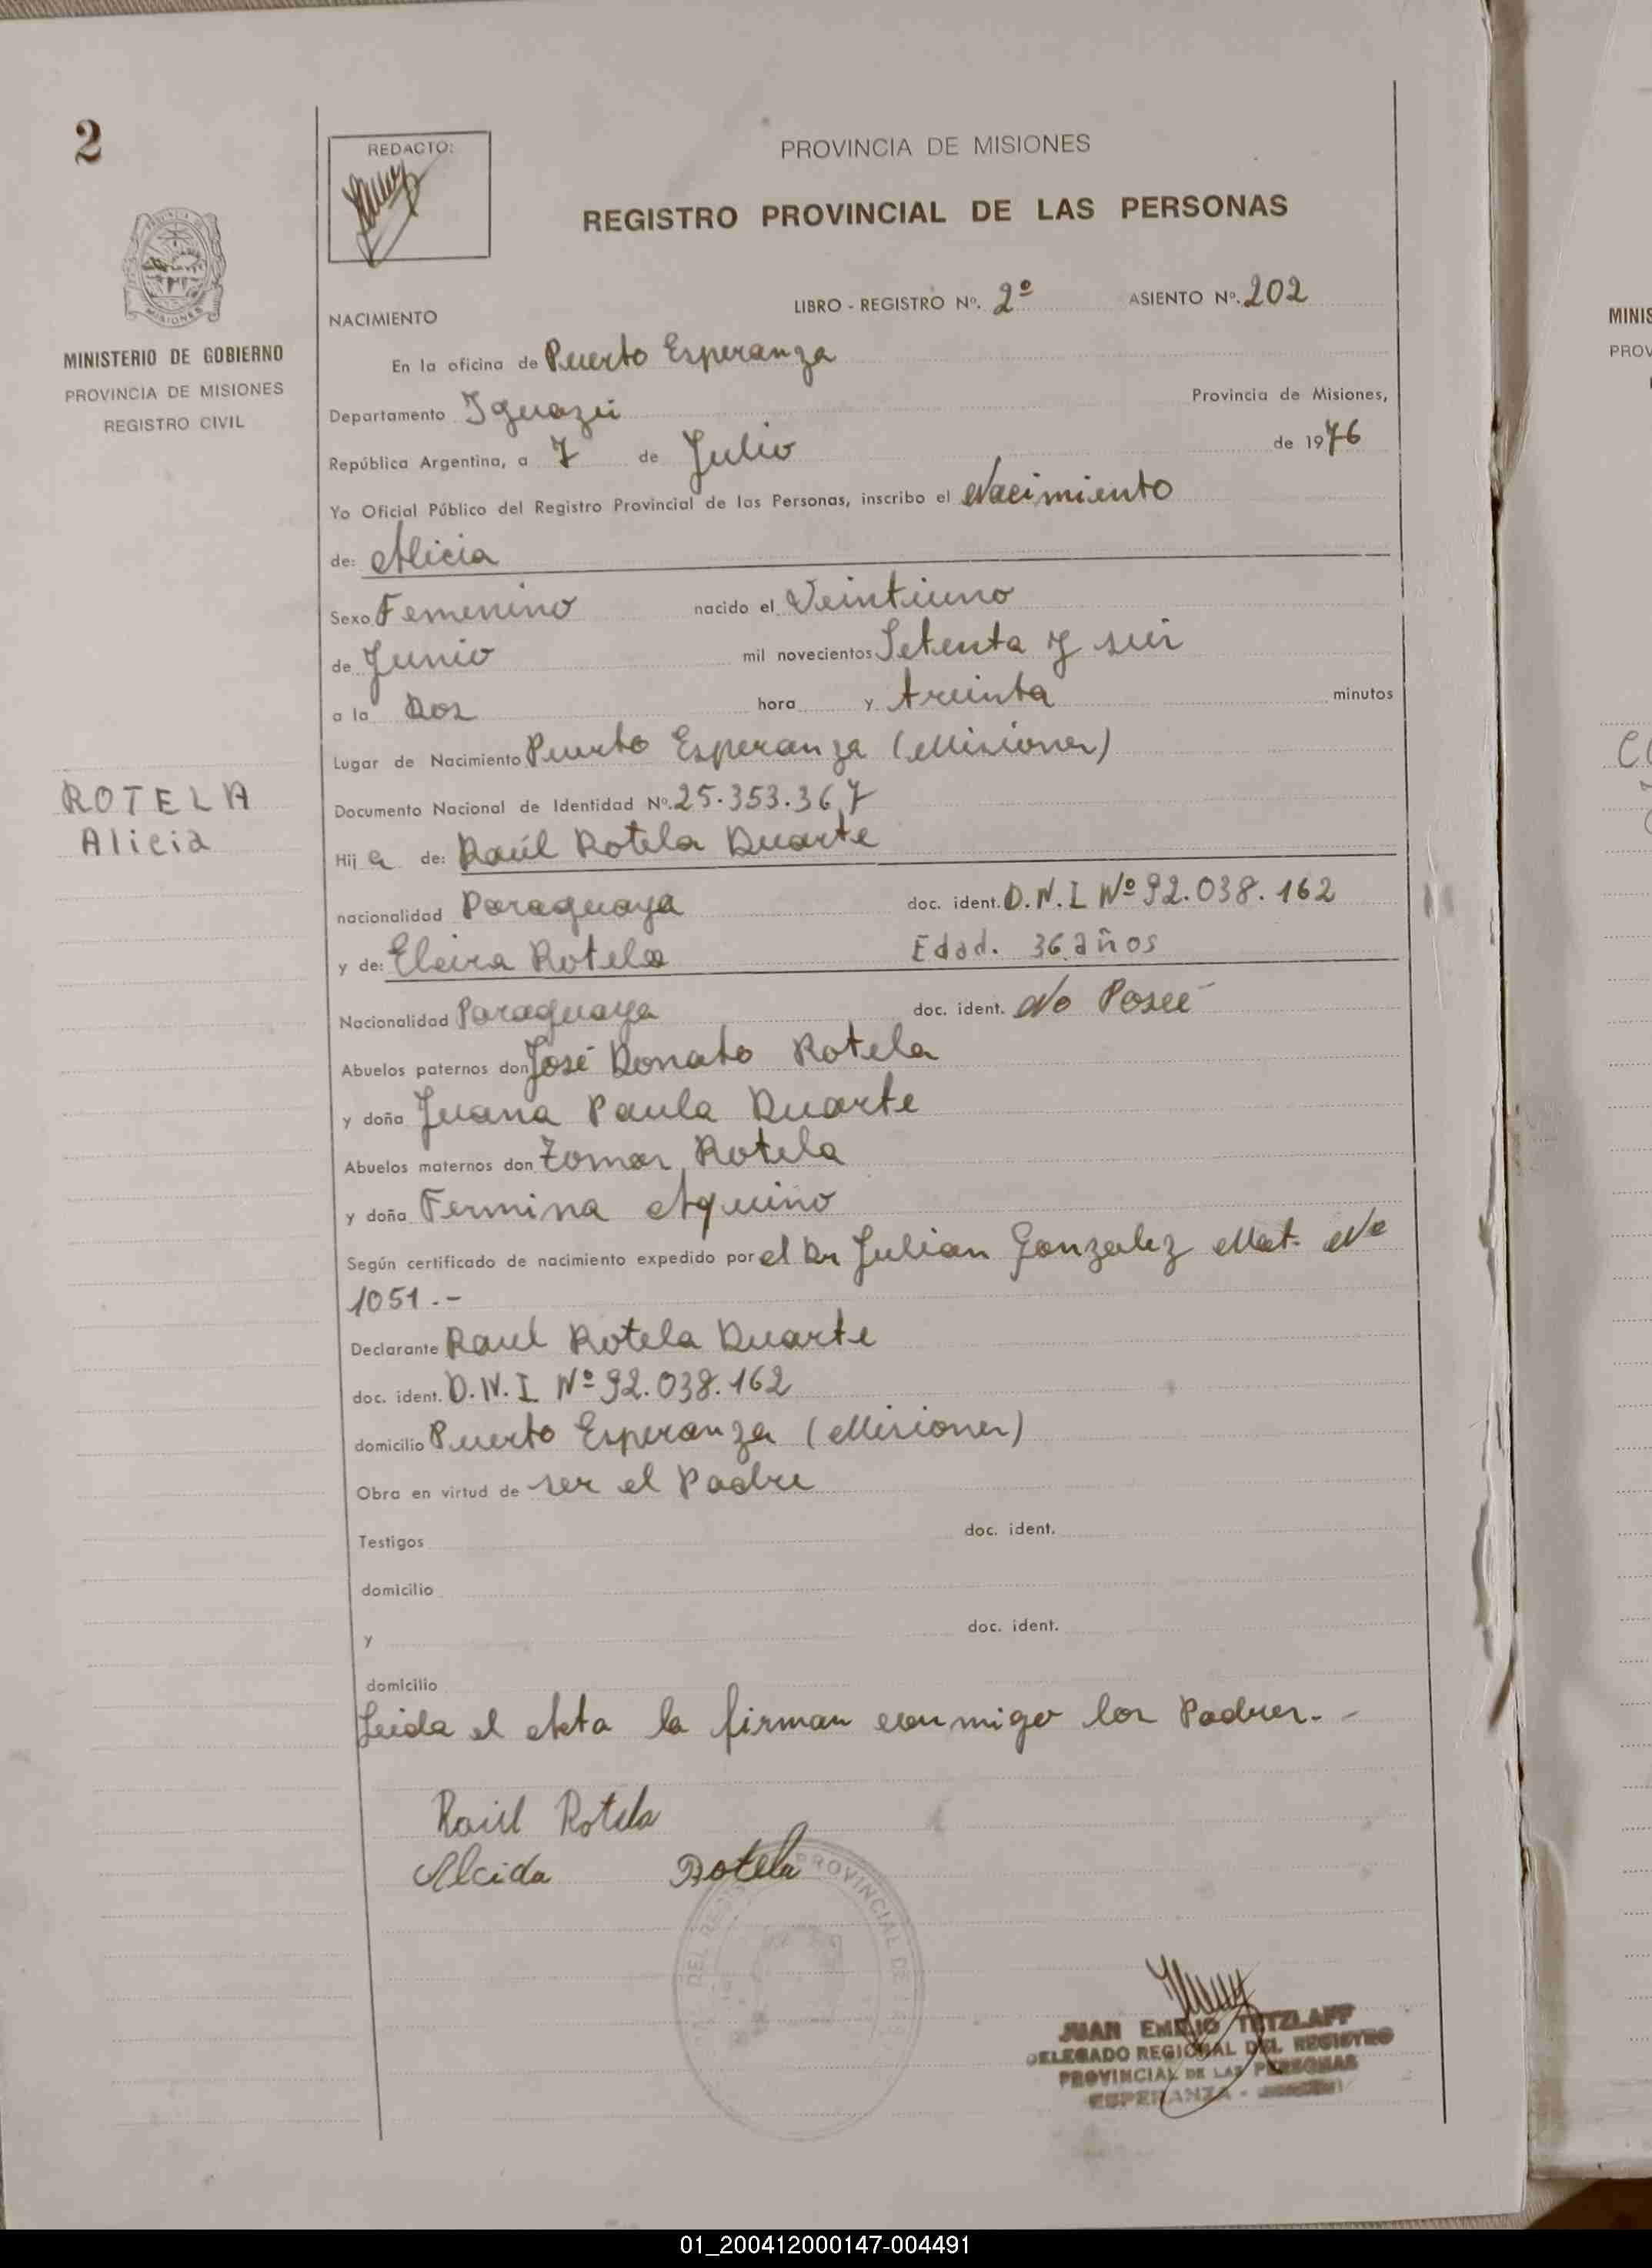 2
REDACTO:
PROVINCIA DE MISIONES
REGISTRO PROVINCIAL DE LAS PERSONAS
MISIONES
MINISTERIO DE GOBIERNO
PROVINCIA DE MISIONES
REGISTRO CIVIL
LIBRO - REGISTRO Nº. 2º ASIENTO Nº. 202
NACIMIENTO
En la oficina de Puerto Esperanza
Departamento Iguazú Provincia de Misiones,
República Argentina, a 7 de Julio de 1976
Yo Oficial Público del Registro Provincial de las Personas, inscribo el Nacimiento
de: Alicia
Sexo Femenino nacido el Veintiuno
de Junio mil novecientos Setenta y seis
a la Dos hora y treinta minutos
Lugar de Nacimiento Puerto Esperanza (Misiones)
ROTELA
Alicia
Documento Nacional de Identidad Nº. 25.353.367
Hij a de: Raúl Rotela Duarte
nacionalidad Paraguaya doc. ident. D.N.I Nº 92.038.162
y de: Rotela Edad. 36 años
Nacionalidad Paraguaya doc. ident. No Posee
Abuelos paternos don José Donato Rotela
y doña Juana Paula Duarte
Abuelos maternos don Rotela
y doña Fermina Aquino
Según certificado de nacimiento expedido por el Dr Julian Gonzalez Mat. No
1051.-
Declarante Raul Rotela Duarte
doc. ident. D.N.I Nº 92.038.162
domicilio Puerto Esperanza (Misiones)
Obra en virtud de ser el Padre
Testigos doc. ident.
domicilio
y doc. ident.
domicilio
Leida el Acta la firman conmigo los Padres.-
Raúl Rotela
Alcida Rotela
PROVINCIAL DE
JUAN EMILIO TETZLAFF
DELEGADO REGIONAL DEL REGISTRO
PROVINCIAL DE LAS PERSONAS
ESPERANZA -
MINIS
PROV
01_200412000147-004491